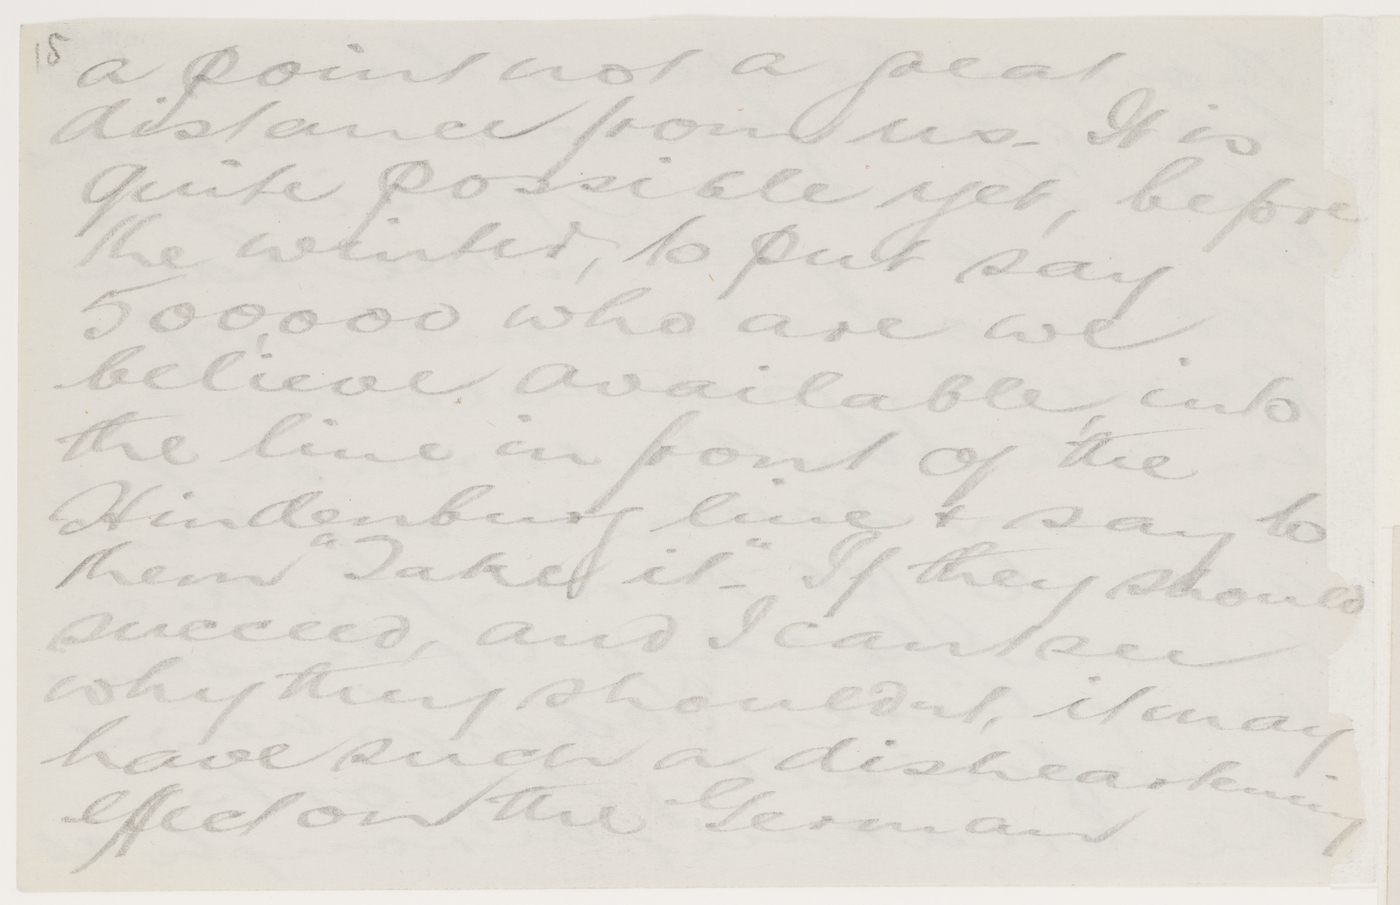 15
a point not a great
distance from us. It is
quite possible yet, before
the winter, to put say
500,000 who are we
believe available, into
the line in front of the
Hindenburg line & say to
them "Take it". If they should
succeed, and I can see
why they shouldnt, it may
have such a disheartening
effect on the German